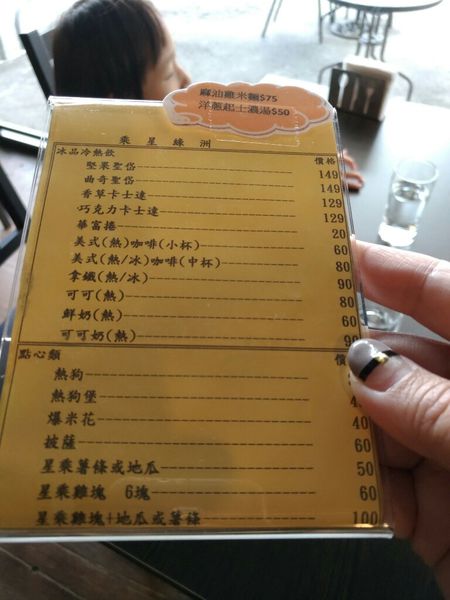 麻油雞米麵$75
洋蔥起士濃湯$50
乘星綠洲
冰品冷熱飲 價格
堅果聖岱 149
曲奇聖岱 149
香草卡士達 129
巧克力卡士達 129
華富捲 20
美式(熱)咖啡(小杯) 60
美式(熱/冰)咖啡(中杯) 80
拿鐵(熱/冰) 90
可可(熱) 80
鮮奶(熱) 60
可可奶(熱) 90
點心類 價
熱狗
熱狗堡
爆米花 40
披薩 60
星乘薯條或地瓜 50
星乘雞塊 6塊 60
星乘雞塊+地瓜或薯條 100